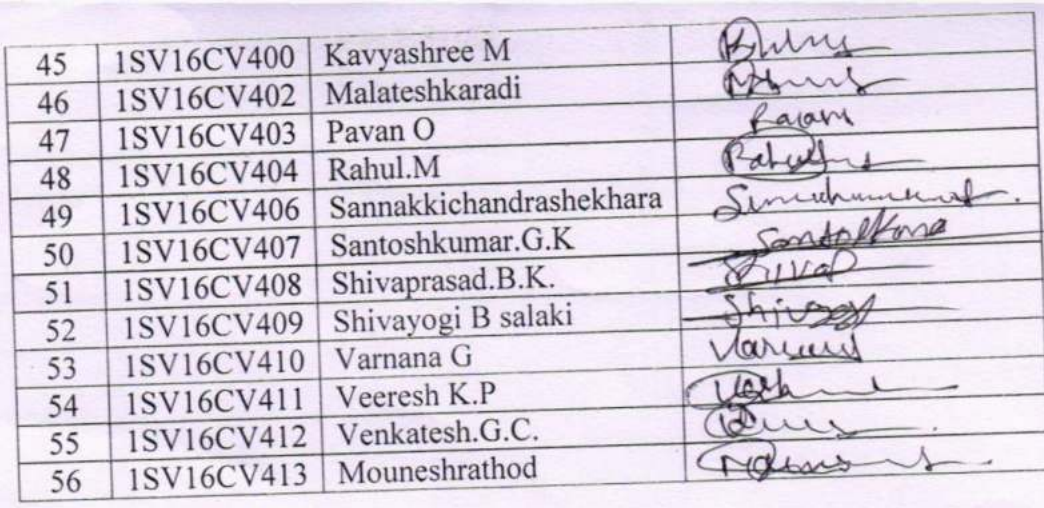 45 1SV16CV400 Kavyashree M
46 1SV16CV402 Malateshkaradi
47 1SV16CV403 Pavan O
48 1SV16CV404 Rahul.M Rahul
49 1SV16CV406 Sannakkichandrashekhara
50 1SV16CV407 Santoshkumar.G.K
51 1SV16CV408 Shivaprasad.B.K.
52 1SV16CV409 Shivayogi B salaki
53 1SV16CV410 Varnana G
54 1SV16CV411 Veeresh K.P
55 1SV16CV412 Venkatesh.G.C.
56 1SV16CV413 Mouneshrathod